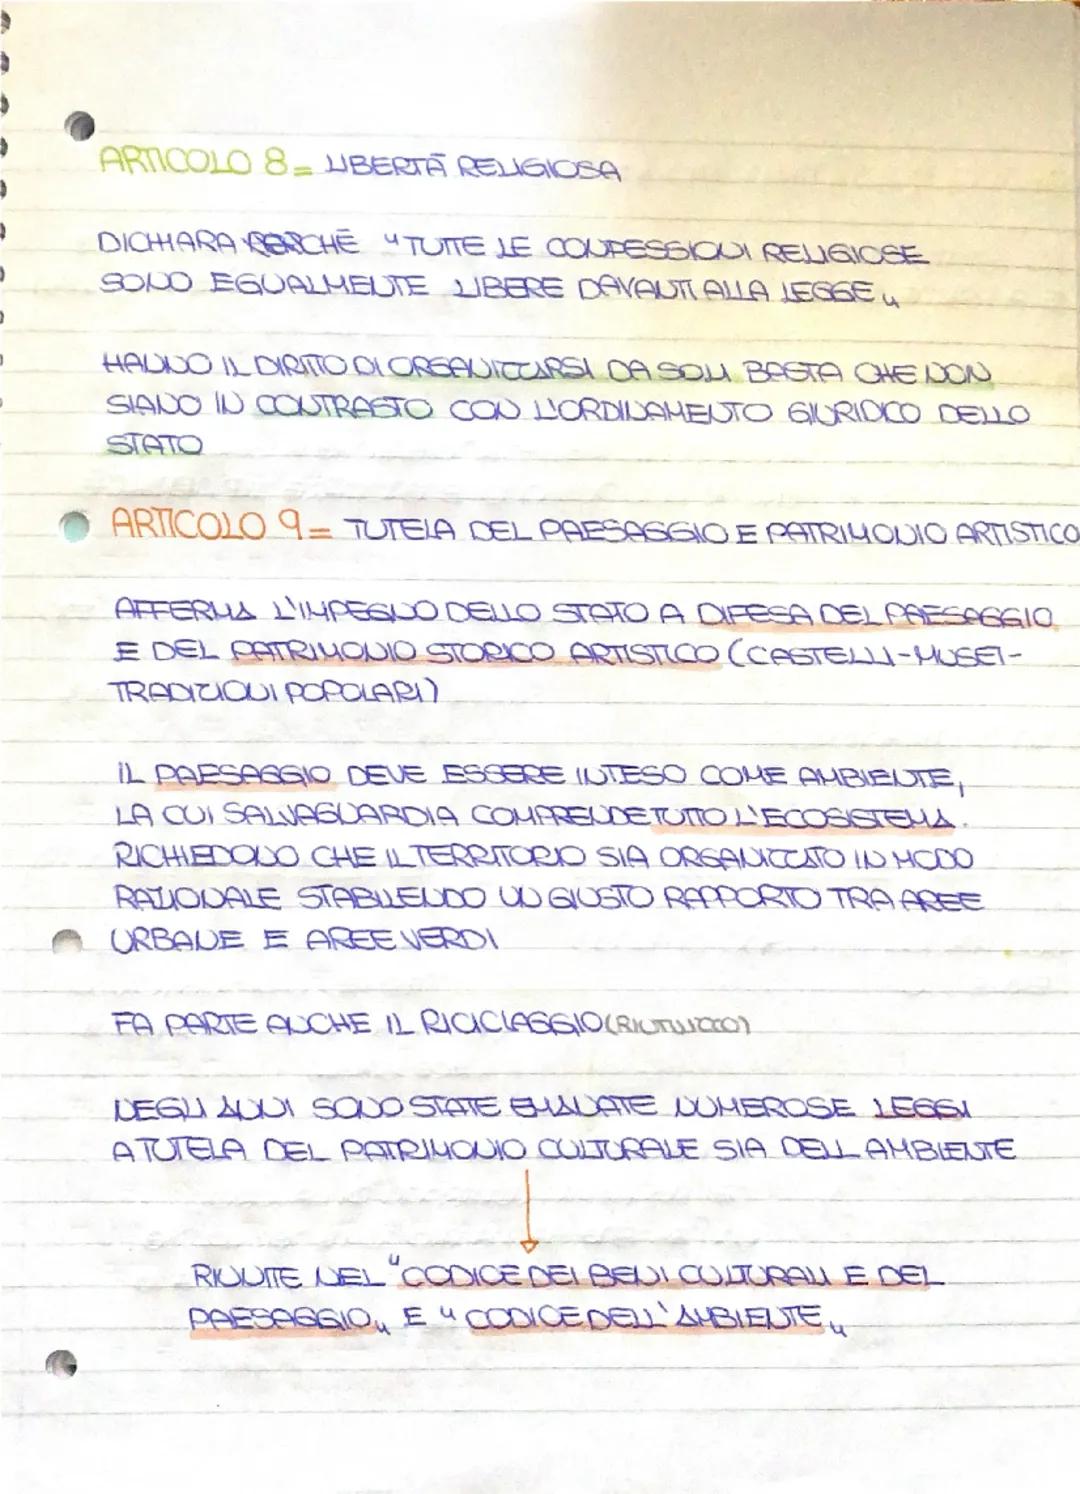 ARTICOLO 8= LIBERTÀ RELIGIOSA
DICHIARA PERCHÈ "TUTTE LE CONFESSIONI RELIGIOSE
SONO EGUALMENTE LIBERE DAVANTI ALLA LEGGE"
HANNO IL DIRITTO DI ORGANIZZARSI DA SOLI BASTA CHE NON
SIANO IN CONTRASTO CON L'ORDINAMENTO GIURIDICO DELLO
STATO
ARTICOLO 9= TUTELA DEL PAESAGGIO E PATRIMONIO ARTISTICO
AFFERMA L'IMPEGNO DELLO STATO A DIFESA DEL PAESAGGIO
E DEL PATRIMONIO STORICO ARTISTICO (CASTELLI-MUSEI-
TRADIZIONI POPOLARI)
IL PAESAGGIO DEVE ESSERE INTESO COME AMBIENTE,
LA CUI SALVAGUARDIA COMPRENDE TUTTO L'ECOSISTEMA.
RICHIEDONO CHE IL TERRITORIO SIA ORGANIZZATO IN MODO
RAZIONALE STABILENDO UN GIUSTO RAPPORTO TRA AREE
URBANE E AREE VERDI
FA PARTE ANCHE IL RICICLAGGIO (RIUTILIZZO)
NEGLI ANNI SONO STATE EMANATE NUMEROSE LEGGI
A TUTELA DEL PATRIMONIO CULTURALE SIA DELL AMBIENTE
RIUNITE NEL "CODICE DEI BENI CULTURALI E DEL
PAESAGGIO" E "CODICE DELL'AMBIENTE"